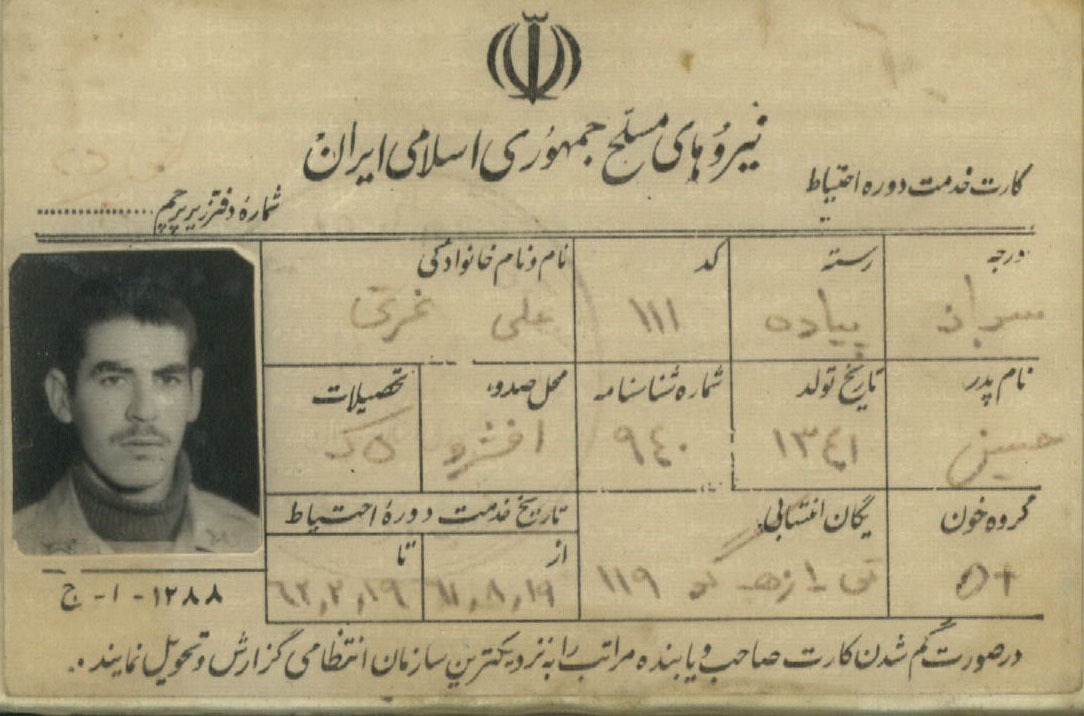 نیروهای مسلح جمهوری اسلامی ایران
کارت خدمت دوره احتیاط
شمارهٔ دفتر زیر پرچم
درجه رسته کد نام و نام خانوادگی
سرباز پیاده ۱۱۱ علی
نام پدر تاریخ تولد شماره شناسنامه محل صدور تحصیلات
حسین ۱۳٤۱ ۹٤۰
گروه خون یگان انتسابی تاریخ خدمت دورهٔ احتیاط
از تا
O+ ۱۱۹ ۶۱٫۸٫۱۹ ۶۲٫۲٫۱۹
۱۲۸۸-۱- ج
درصورت گم شدن کارت صاحب و یابنده مراتب را به نزدیکترین سازمان انتظامی گزارش و تحویل نمایند.